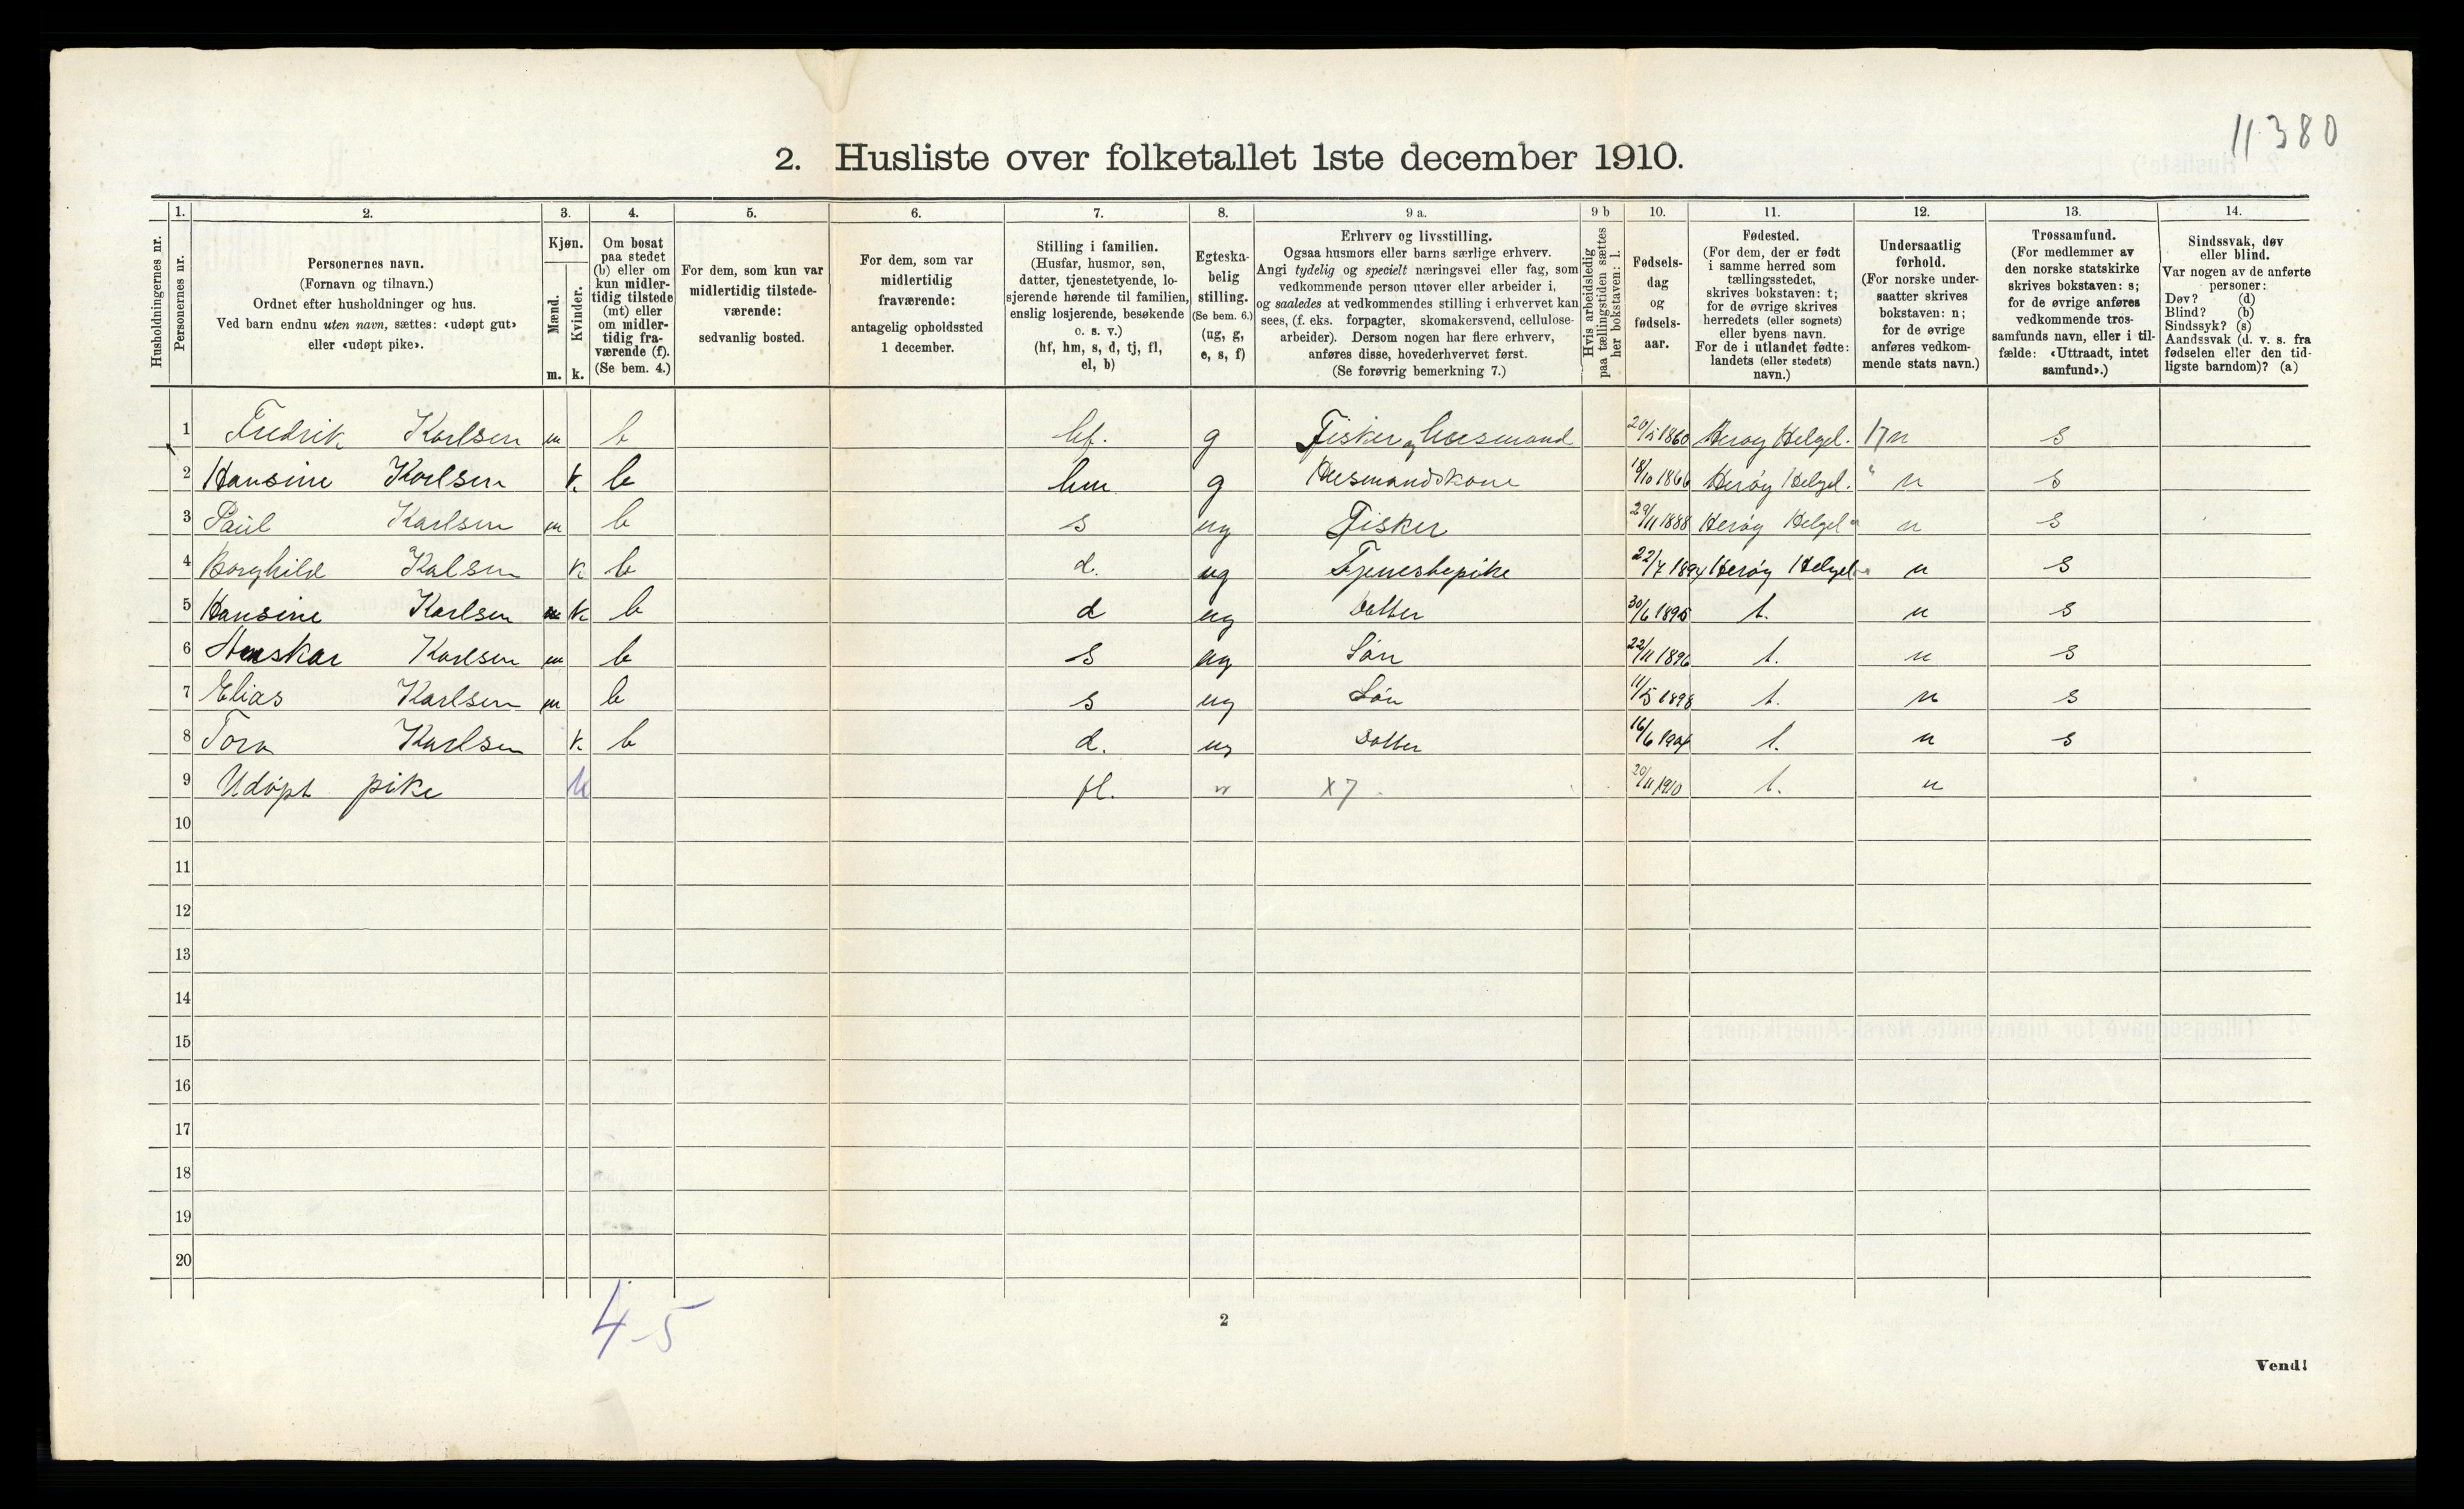 11380
2. Husliste over folketallet 1ste december 1910.
Husholdningernes nr.
1.
Personernes nr.
2.
Personernes navn.
(Fornavn og tilnavn.)
Ordnet efter husholdninger og hus.
Ved barn endnu uten navn, sættes: «udøpt gut»
eller «udøpt pike».
3.
Kjøn.
Mænd.
Kvinder.
m. k.
4.
Om bosat
paa stedet
(b) eller om
kun midler-
tidig tilstede
(mt) eller
om midler-
tidig fra-
værende (f).
(Se bem. 4.)
5.
For dem, som kun var
midlertidig tilstede-
værende:
sedvanlig bosted.
6.
For dem, som var
midlertidig
fraværende:
antagelig opholdssted
1 december.
7.
Stilling i familien.
(Husfar, husmor, søn,
datter, tjenestetyende, lo-
sjerende hørende til familien,
enslig losjerende, besøkende
o. s. v.)
(hf, hm, s, d, tj, fl,
el, b)
8.
Egteska-
belig
stilling.
(Se bem. 6.)
(ug, g,
e, s, f)
9 a.
Erhverv og livsstilling.
Ogsaa husmors eller barns særlige erhverv.
Angi tydelig og specielt næringsvei eller fag, som
vedkommende person utøver eller arbeider i,
og saaledes at vedkommendes stilling i erhvervet kan
sees, (f. eks. forpagter, skomakersvend, cellulose-
arbeider). Dersom nogen har flere erhverv,
anføres disse, hovederhvervet først.
(Se forøvrig bemerkning 7.)
9 b
Hvis arbeidsledig
paa tællingstiden sættes
her bokstaven: l.
10.
Fødsels-
dag
og
fødsels-
aar.
11.
Fødested.
(For dem, der er født
i samme herred som
tællingsstedet,
skrives bokstaven: t;
for de øvrige skrives
herredets (eller sognets)
eller byens navn.
For de i utlandet fødte:
landets (eller stedets)
navn.)
12.
Undersaatlig
forhold.
(For norske under-
saatter skrives
bokstaven: n;
for de øvrige
anføres vedkom-
mende stats navn.)
13.
Trossamfund.
(For medlemmer av
den norske statskirke
skrives bokstaven: s;
for de øvrige anføres
vedkommende tros-
samfunds navn, eller i til-
fælde: «Uttraadt, intet
samfund».)
14.
Sindssvak, døv
eller blind.
Var nogen av de anførte
personer:
Døv? (d)
Blind? (b)
Sindssyk? (s)
Aandssvak (d. v. s. fra
fødselen eller den tid-
ligste barndom)? (a)
1 Fredrik Karlsen m b hf. g Fisker og husmand 20/5 1860 Herøy Helgel. 17 n s
2 Hansine Karlsen k. b hm g Husmandskone 18/10 1866 Herøy Helgel. " n s
3 Paul Karlsen m b s ug Fisker 29/11 1888 Herøy Helgel " n s
4 Borghild Kalsen k b d. ug Tjenestepike 22/7 1894 Herøy Helgel " n s
5 Hansine Karlsen m k b d ug Datter 30/6 1895 t. n s
6 Karlsen m b s ug Søn 22/11 1896 t. n s
7 Elias Karlsen m b s ug Søn 11/5 1898 t. n s
8 Tora Karlsen k. b d. ug Datter 16/6 1904 t. n s
9 Udøpt pike k fl. " x7 20/11 1910 t. n
10
11
12
13
14
15
16
17
18
19
20
4-5
2
Vend!